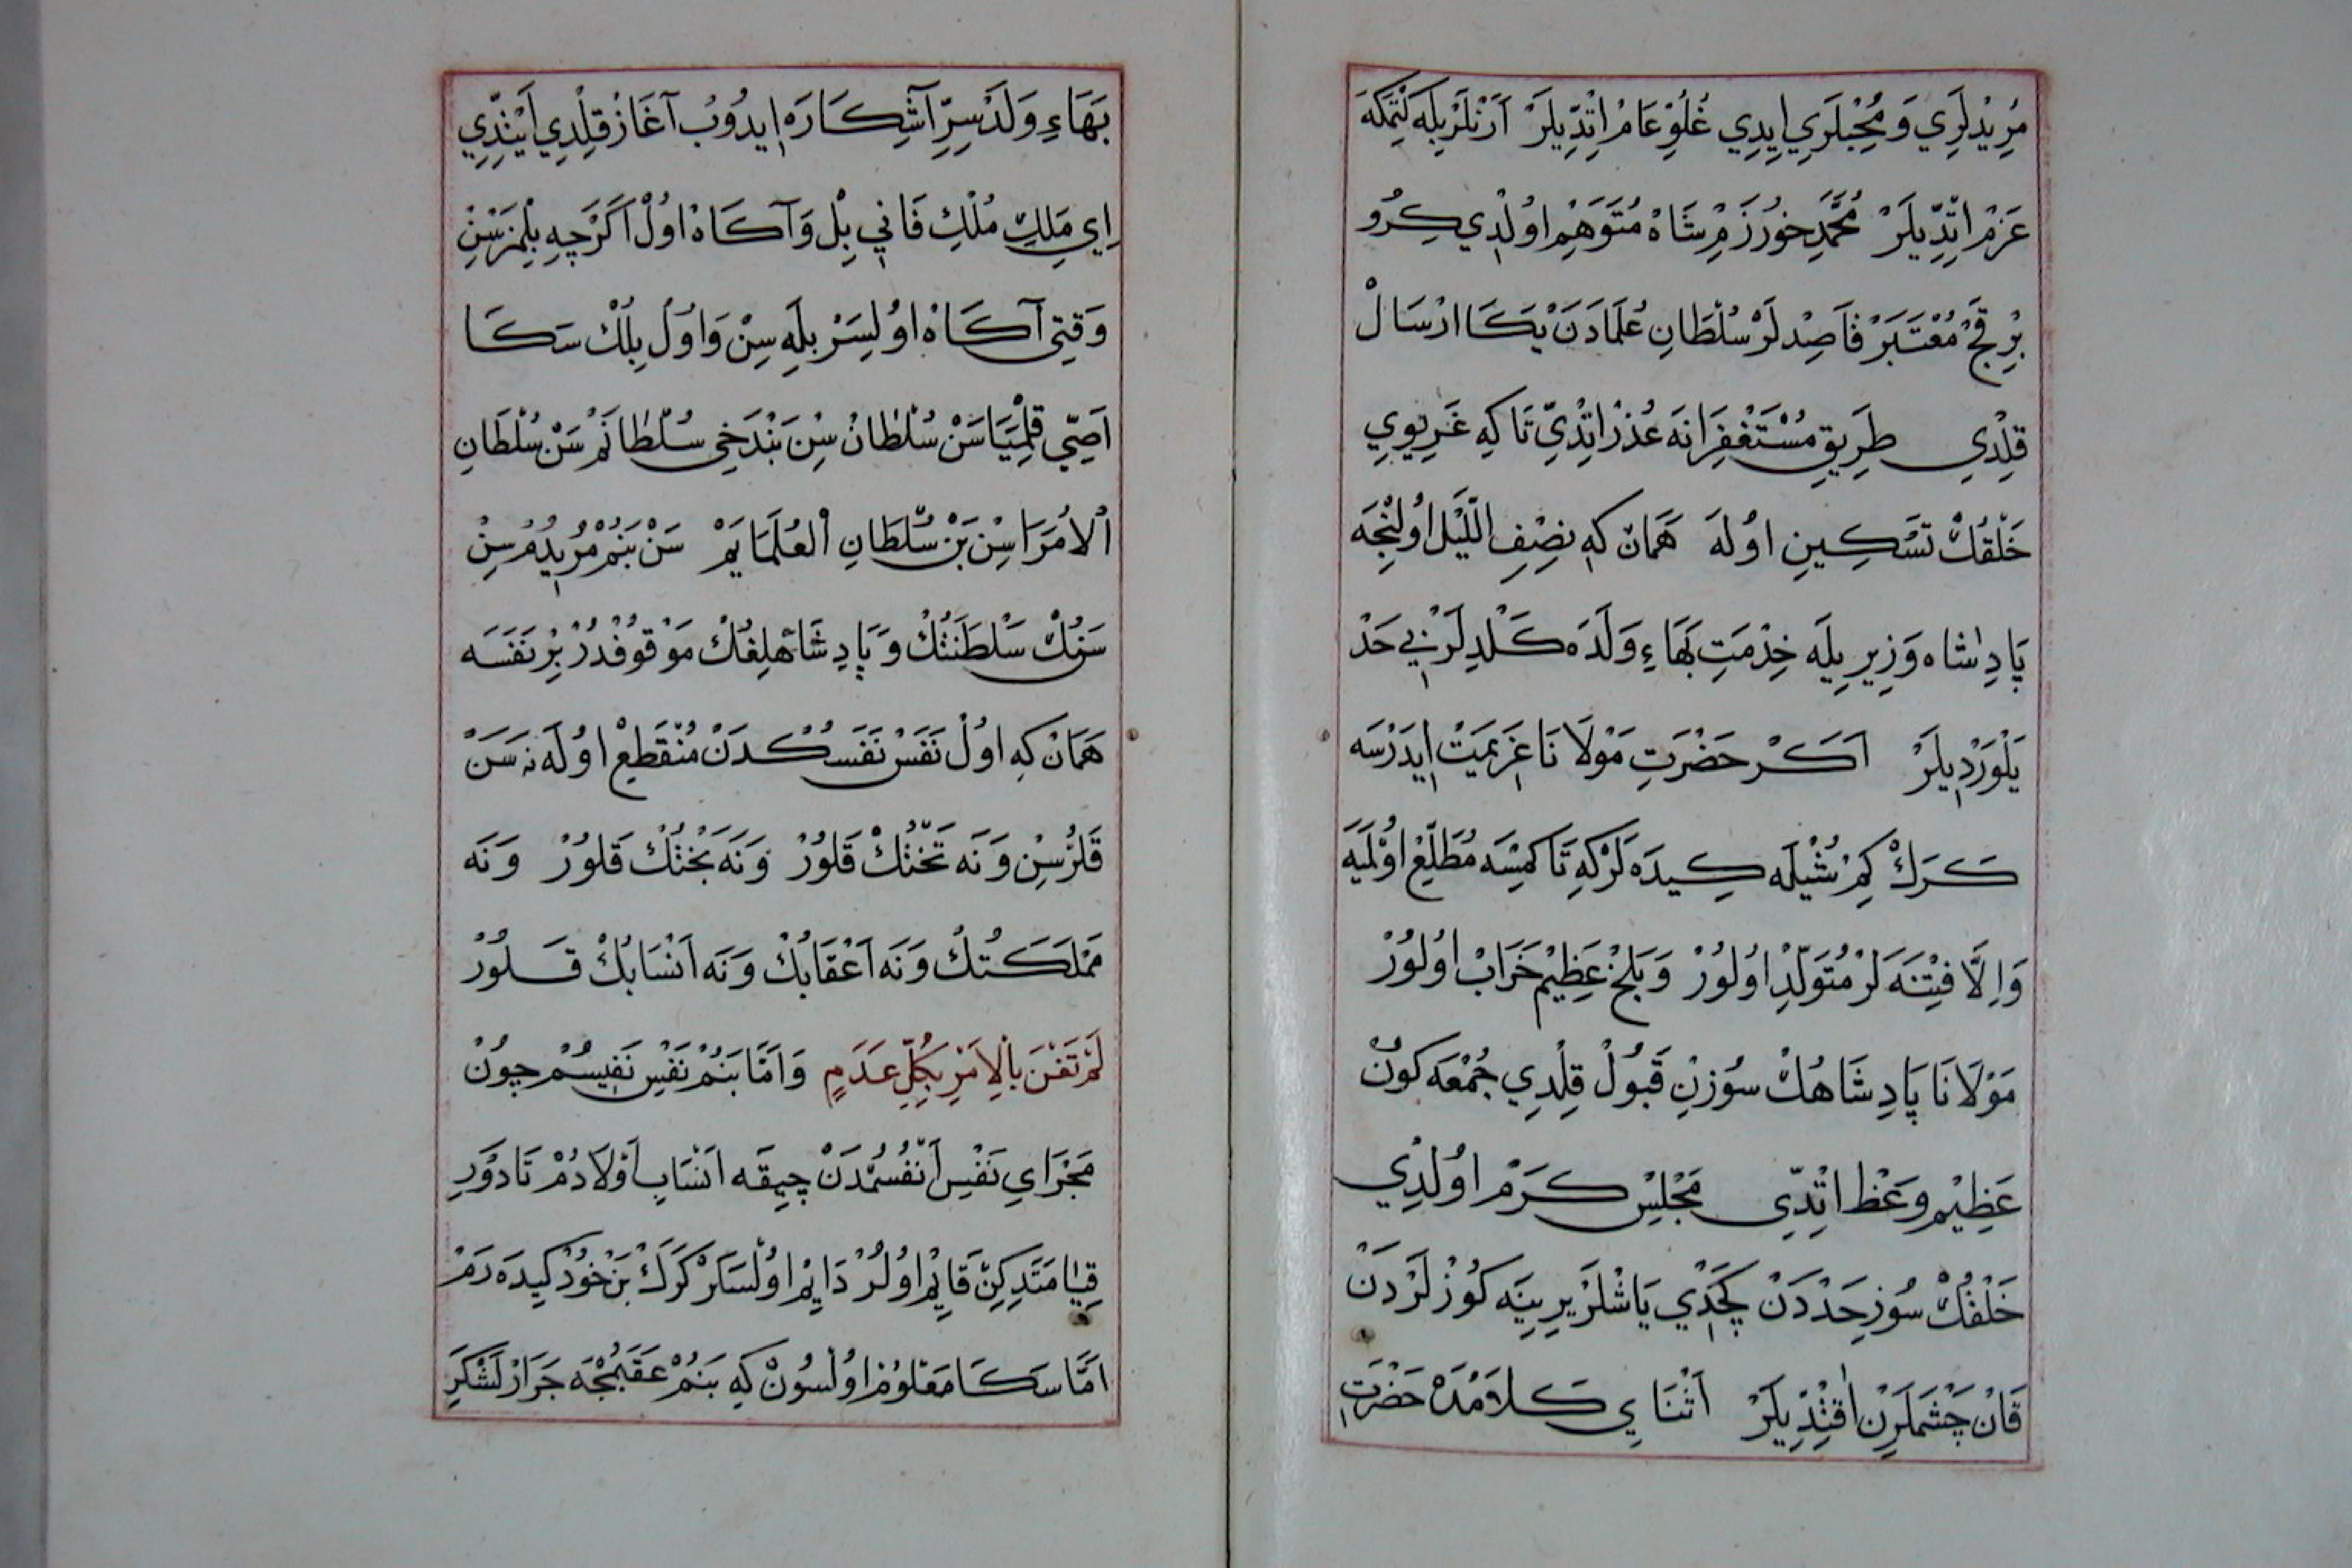 مُرِيدْلَرِي وَ مُحِبْلَرِي اِيدِي غُلُوِّ عَامْ اِتْدِّيلَرْ اَرَنْلَرْ بِلَه لَتِمَكَهْ
عَزْمْ اِتْدِّيلَرْ مُحَمَّدِ خُورَزْمِ شَاهْ مُتَوَهِّمْ اوُلْدِي كِرُو
بِرْ قَچْ مُعْتَبَرْ قَاصِدْلَرْ سُلْطَانِ عُلَمَادَنْ يَكَا اِرْسَالْ
قِلْدِي طَرِيقِ مُسْتَغْفِرَانَه عُذْرْ اِتْدِّي تَا كِه غَرِيوِي
خَلْقُكْ تَسْكِينِ اوُلَه هَمَانْ كِه نِصْفِ اللَّيْلْ اوُلِنْجَه
پَادِشَاه وَزِيرِ بِلَه خِدْمَتِ بَهَاءِ وَلَدَه كَلْدِلَرْ بِي حَدْ
يَلْوَرْدِيلَرْ اَكَرْ حَضْرَتِ مَوْلَانَا عَزِيمَتْ اِيدَرْسَه
كَرَكْ كِمْ شُيْلَه كِيدَه لَرْ كِه تَا كِمْسَه مُطَّلِعْ اوُلْمَيَه
وَاِلَّا فِتْنَه لَرْ مُتَوَلِّدْ اوُلُورْ وَ بَلْخْ عَظِيمْ خَرَابْ اوُلُورْ
مَوْلَانَا پَادِشَاهُكْ سُوزِنِ قَبُولْ قِلْدِي جُمْعَه كُونْ
عَظِيمْ وَعْظْ اتْدِّي مَجْلِسْ كَرَمْ اوُلْدِي
خَلْقُكْ سُوزِ حَدْدَنْ كَچْدِي يَاشْلَرْ يِرِينَه كُوزْلَرْدَنْ
قَانْ چَشْمَلَرِنْ اَقِتْدِّيلَرْ اَثْنَايِ كَلَامْدَهْ حَضْرَتِ
بَهَاءِ وَلَدْ سِرِّ آشِكَارَه اِيدُوبْ آغَازْ قِلْدِي اَيْتْدِّي
اِي مَلِكِ مُلْكِ فَانِي بِلْ وَ آكَاهْ اوُلْ اَكَرْچِه بِلْمَزْسِنْ
وَقْتِي آكَاهْ اوُلِسَرْ بِلَه سِنْ وَ اوُلْ بِلِكْ سَكَا
اَصِّي قِلْمِيَا سَنْ سُلْطَانْ سِنْ بَنْ دَخِي سُلْطَانَمْ سَنْ سُلْطَانِ
اْلاُمَرَاسِنْ بَنْ سُلْطَانِ الْعُلَمَايَمْ سَنْ بَنِمْ مُرِيدُمْسِنْ
سَنُكْ سَلْطَنَتُكْ وَ پَادِشَاهْلِغُكْ مَوْقُوفْدُرْ بِرْ نَفَسَه
هَمَانْ كِه اوُلْ نَفَسْ نَفَسُكْدَنْ مُنْقَطِعْ اوُلَه نَه سَنْ
قَلُرْسِنْ وَ نَه تَخْتُكْ قَلُورْ وَ نَه بَخْتُكْ قَلُورْ وَ نَه
مَمْلَكَتُكْ وَ نَه اَعْقَابُكْ وَ نَه اَنْسَابُكْ قَلُورْ
لَمْ تَغْنَ بِالْاَمْرِ بِكُلِّ عَدَمٍ وَ اَمَّا بَنُمْ نَفَسِ نَفِيسُمْ چُونْ
مَجْرَايِ نَفَسِ اَنْفُسُمْدَنْ چِيقَه اَنْسَابِ اَوْلَادُمْ تَا دَوْرِ
قِيَامَتَدِكِنْ قَايِمْ اوُلُرْ دَايِمْ اوُلْسَلَرْ كَرَكْ بَنْ خُودْ كِيدَه رَمْ
اَمَّا سَكَا مَعْلُومْ اوُلْسُونْ كِه بَنُمْ عَقَبُمْجَه جَرَارْ لَشْكَرِ